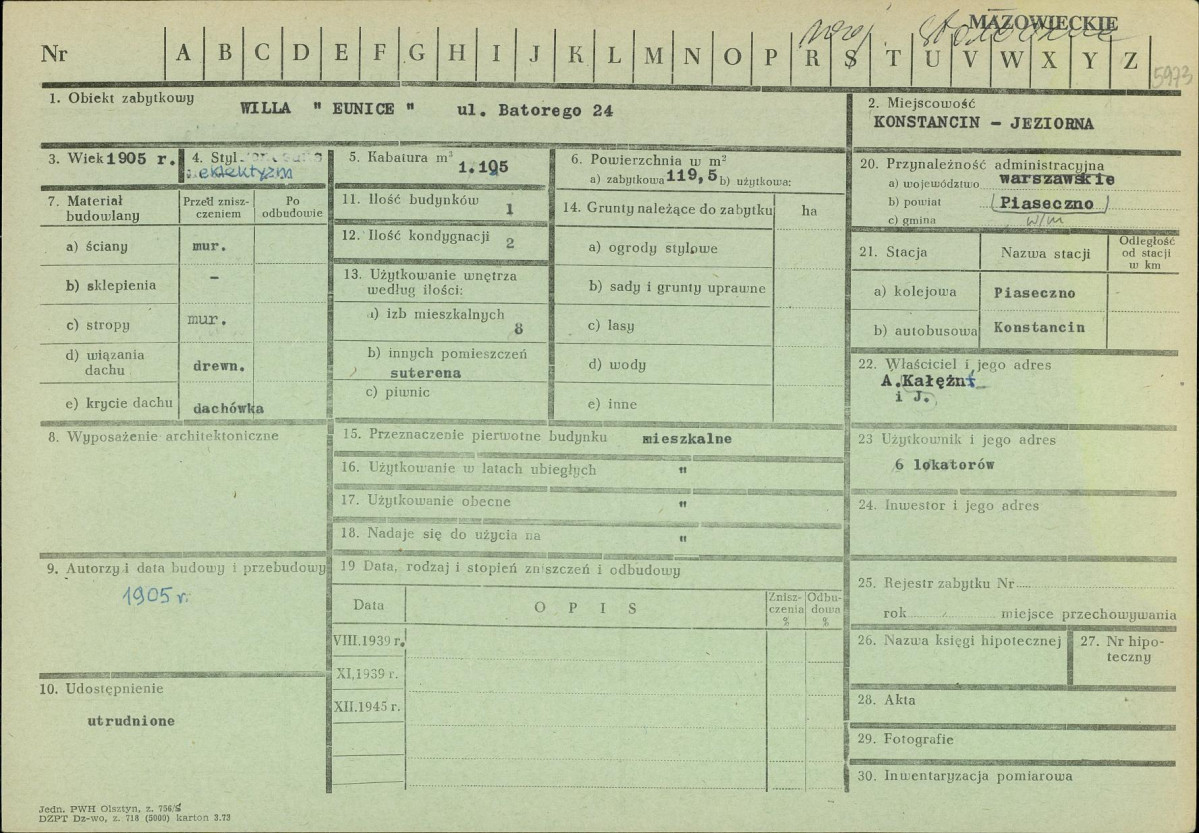 MAZOWIECKIE
Nr A B C D E F G H I J K L M N O P R S T U V W X Y Z
5973
1. Obiekt zabytkowy WILLA " EUNICE " ul. Batorego 24
2. Miejscowość
KONSTANCIN - JEZIORNA
3. Wiek 1905 r.
4. Styl
eklektyzm
5. Kabatura m³ 1.195
6. Powierzchnia w m²
a) zabytkowa 119,5 b) użytkowa:
7. Materiał budowlany
Przed znisz-
czeniem
Po
odbudowie
a) ściany mur.
b) sklepienia -
c) stropy mur.
d) wiązania
dachu drewn.
e) krycie dachu dachówka
8. Wyposażenie architektoniczne
9. Autorzy i data budowy i przebudowy
1905 r.
10. Udostępnienie
utrudnione
11. Ilość budynków 1
12. Ilość kondygnacji 2
13. Użytkowanie wnętrza
według ilości:
a) izb mieszkalnych 8
b) innych pomieszczeń
suterena
c) piwnic
14. Grunty należące do zabytku ha
a) ogrody stylowe
b) sady i grunty uprawne
c) lasy
d) wody
e) inne
15. Przeznaczenie pierwotne budynku mieszkalne
16. Użytkowanie w latach ubiegłych "
17. Użytkowanie obecne "
18. Nadaje się do użycia na "
19 Data, rodzaj i stopień zniszczeń i odbudowy
Data
O P I S
Znisz-
czenia
%
Odbu-
dowa
%
VIII.1939 r.
XI,1939 r.
XII.1945 r.
20. Przynależność administracyjna
a) województwo warszawskie
b) powiat Piaseczno
c) gmina w/m
21. Stacja
Nazwa stacji
Odległość
od stacji
w km
a) kolejowa Piaseczno
b) autobusowa Konstancin
22. Właściciel i jego adres
A.Kałężni
i J.
23 Użytkownik i jego adres
6 lokatorów
24. Inwestor i jego adres
25. Rejestr zabytku Nr
rok miejsce przechowywania
26. Nazwa księgi hipotecznej
27. Nr hipo-
teczny
28. Akta
29. Fotografie
30. Inwentaryzacja pomiarowa
Jedn. PWH Olsztyn, z. 756/S
DZPT Dz-wo, z. 718 (5000) karton 3.73